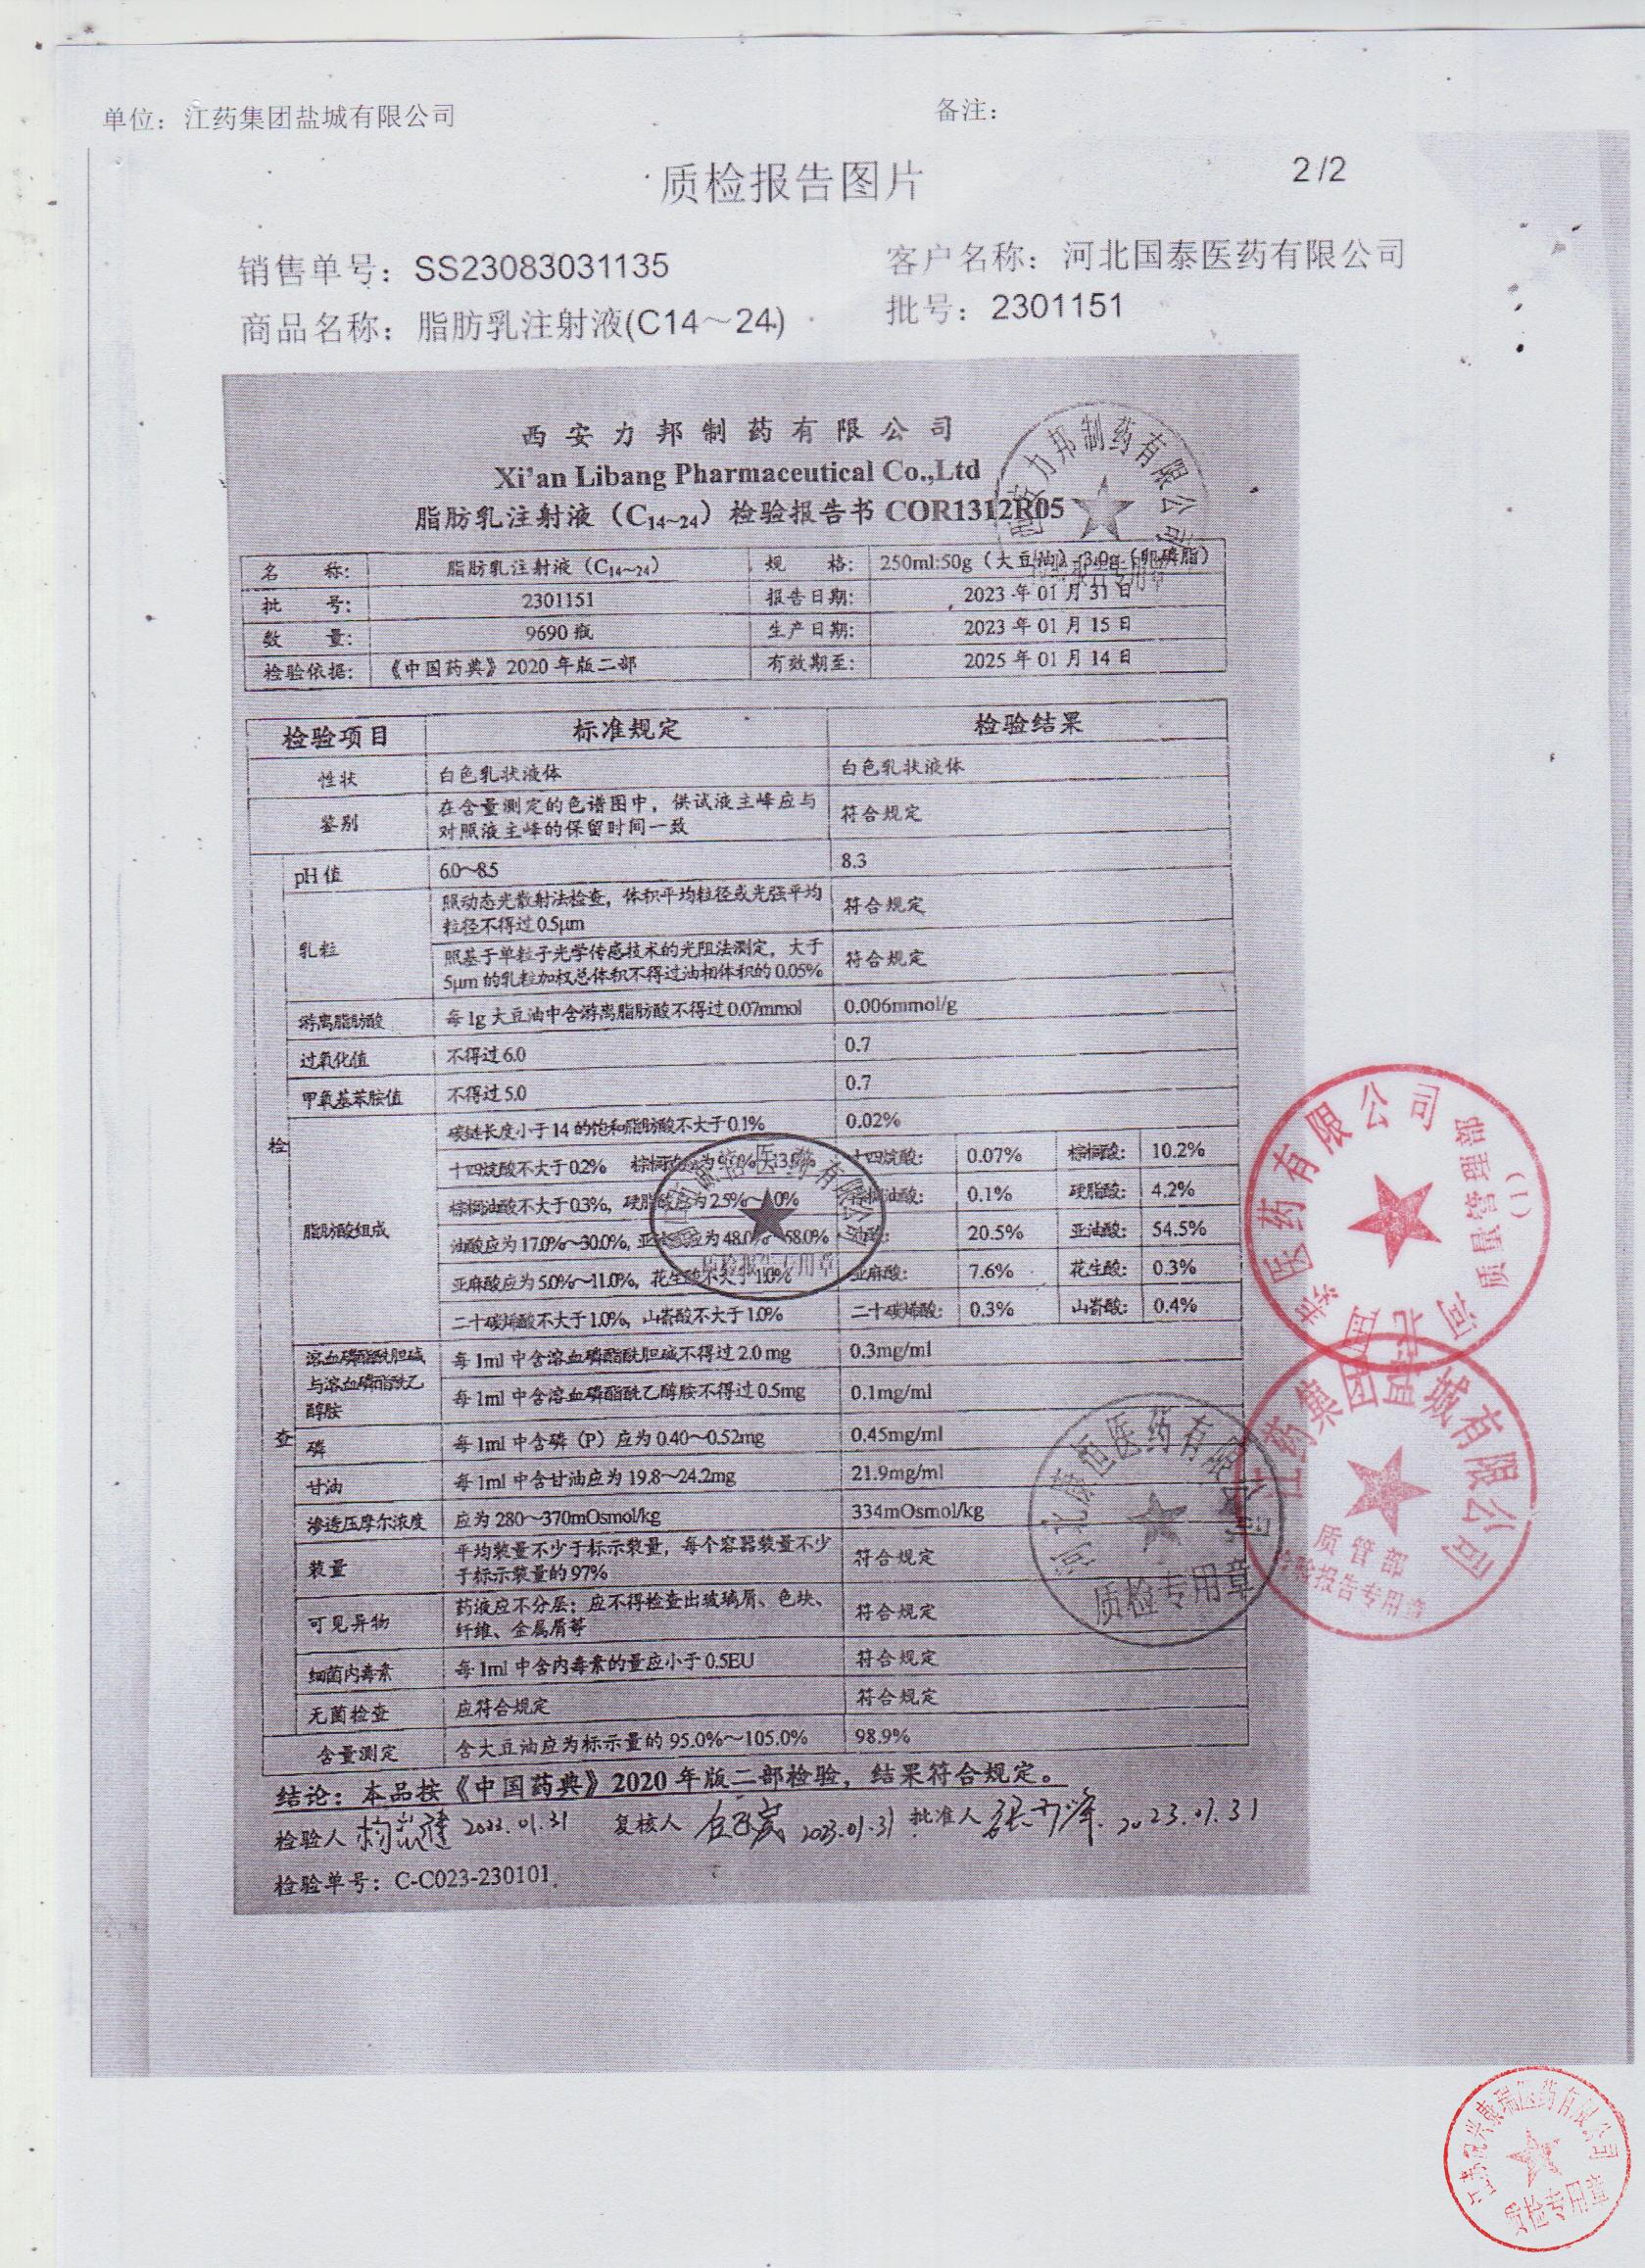 单位：江药集团盐城有限公司
备注：
质检报告图片
2/2
销售单号：SS23083031135
客户名称：河北国泰医药有限公司
商品名称：脂肪乳注射液(C14～24)
批号：2301151
西安力邦制药有限公司
Xi'an Libang Pharmaceutical Co.,Ltd
脂肪乳注射液（C14~24）检验报告书 COR1312R05
名 称： 脂肪乳注射液（C14~24） 规 格： 250ml:50g（大豆油）:3.0g（卵磷脂）
批 号： 2301151 报告日期： 2023 年 01 月 31 日
数 量： 9690 瓶 生产日期： 2023 年 01 月 15 日
检验依据： 《中国药典》2020 年版二部 有效期至： 2025 年 01 月 14 日
检验项目 标准规定 检验结果
性状 白色乳状液体 白色乳状液体
鉴别 在含量测定的色谱图中，供试液主峰应与
对照液主峰的保留时间一致 符合规定
检查
pH 值 6.0～8.5 8.3
乳粒 照动态光散射法检查，体积平均粒径或光强平均
粒径不得过 0.5μm 符合规定
照基于单粒子光学传感技术的光阻法测定，大于
5μm 的乳粒加权总体积不得过油相体积的 0.05% 符合规定
游离脂肪酸 每 1g 大豆油中含游离脂肪酸不得过 0.07mmol 0.006mmol/g
过氧化值 不得过 6.0 0.7
甲氧基苯胺值 不得过 5.0 0.7
脂肪酸组成 碳链长度小于 14 的饱和脂肪酸不大于 0.1% 0.02%
十四烷酸不大于 0.2% 十四烷酸： 0.07% 棕榈酸： 10.2%
棕榈油酸不大于 0.3%，硬脂酸应为 2.5%～ 棕榈油酸： 0.1% 硬脂酸： 4.2%
油酸应为 17.0%～30.0%，亚油酸应为 48.0%～58.0% 油酸： 20.5% 亚油酸： 54.5%
亚麻酸应为 5.0%～11.0%，花生酸不大于 1.0% 亚麻酸： 7.6% 花生酸： 0.3%
二十碳烯酸不大于 1.0%，山嵛酸不大于 1.0% 二十碳烯酸： 0.3% 山嵛酸： 0.4%
溶血磷酯酰胆碱
与溶血磷酯酰乙
醇胺
每 1ml 中含溶血磷酯酰胆碱不得过 2.0 mg 0.3mg/ml
每 1ml 中含溶血磷酯酰乙醇胺不得过 0.5mg 0.1mg/ml
磷 每 1ml 中含磷（P）应为 0.40～0.52mg 0.45mg/ml
甘油 每 1ml 中含甘油应为 19.8～24.2mg 21.9mg/ml
渗透压摩尔浓度 应为 280～370mOsmol/kg 334mOsmol/kg
装量 平均装量不少于标示装量，每个容器装量不少
于标示装量的 97% 符合规定
可见异物 药液应不分层；应不得检查出玻璃屑、色块、
纤维、金属屑等 符合规定
细菌内毒素 每 1ml 中含内毒素的量应小于 0.5EU 符合规定
无菌检查 应符合规定 符合规定
含量测定 含大豆油应为标示量的 95.0%～105.0% 98.9%
结论：本品按《中国药典》2020 年版二部检验，结果符合规定。
检验人 2023.01.31 复核人 2023.01.31 批准人 2023.01.31
检验单号：C-C023-230101
西安力邦制药有限公司
医药有限公司
质检报告专用章
河北国泰医药有限公司
质量管理部
（1）
江药集团盐城有限公司
质管部
检验报告专用章
医药有限公司
质检专用章
康瑞医药有限公司
质检专用章